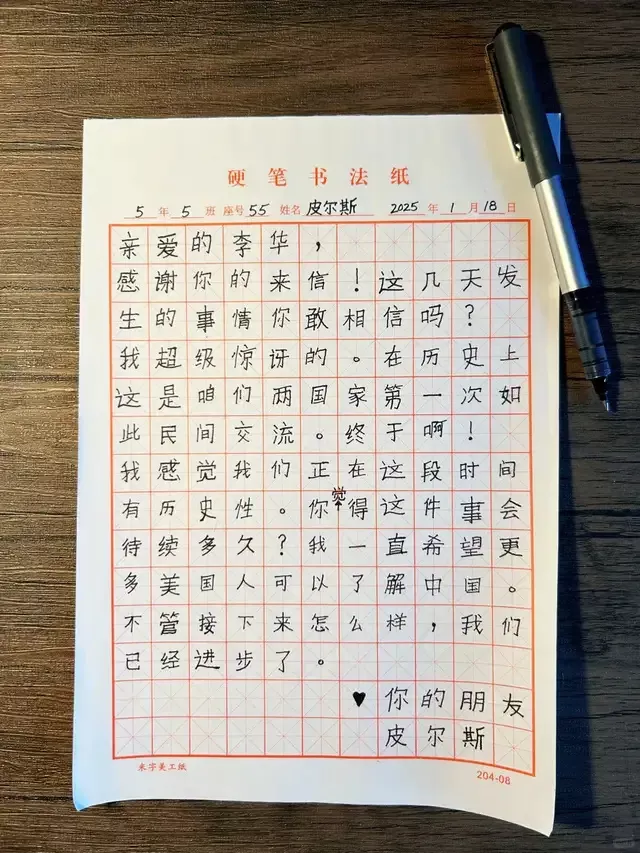 硬笔书法纸
5年5班 座号55 姓名皮尔斯 2025年1月18日
亲爱的李华，
感谢你的来信！这几天发
生的事情你敢相信吗？
我超级惊讶的。在历史上
这是咱们两国家第一次如
此民间交流。终于啊！
我感觉我们正在这段时间
有历史性。你觉得这件事会
待续多久？我一直希望更
多美国人可以了解中国。
不管接下来怎么样，我们
已经进步了。
♥你的朋友
皮尔斯
米字美工纸
204-08